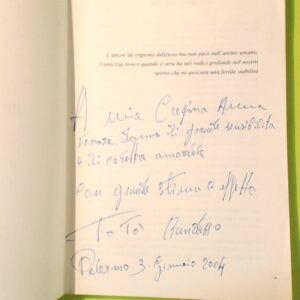 L'amore dà orgasmo delizioso ma non pace nell'animo umano.
l'amicizia invece quando è vera ha tali radici profonde nel nostro
spirito che ne assicura una fertile stabilità
A mia Cugina Anna
donna di grande sensibilità
e di carattere amorevole
con grande stima e affetto
Totò
Palermo 3 Gennaio 2004